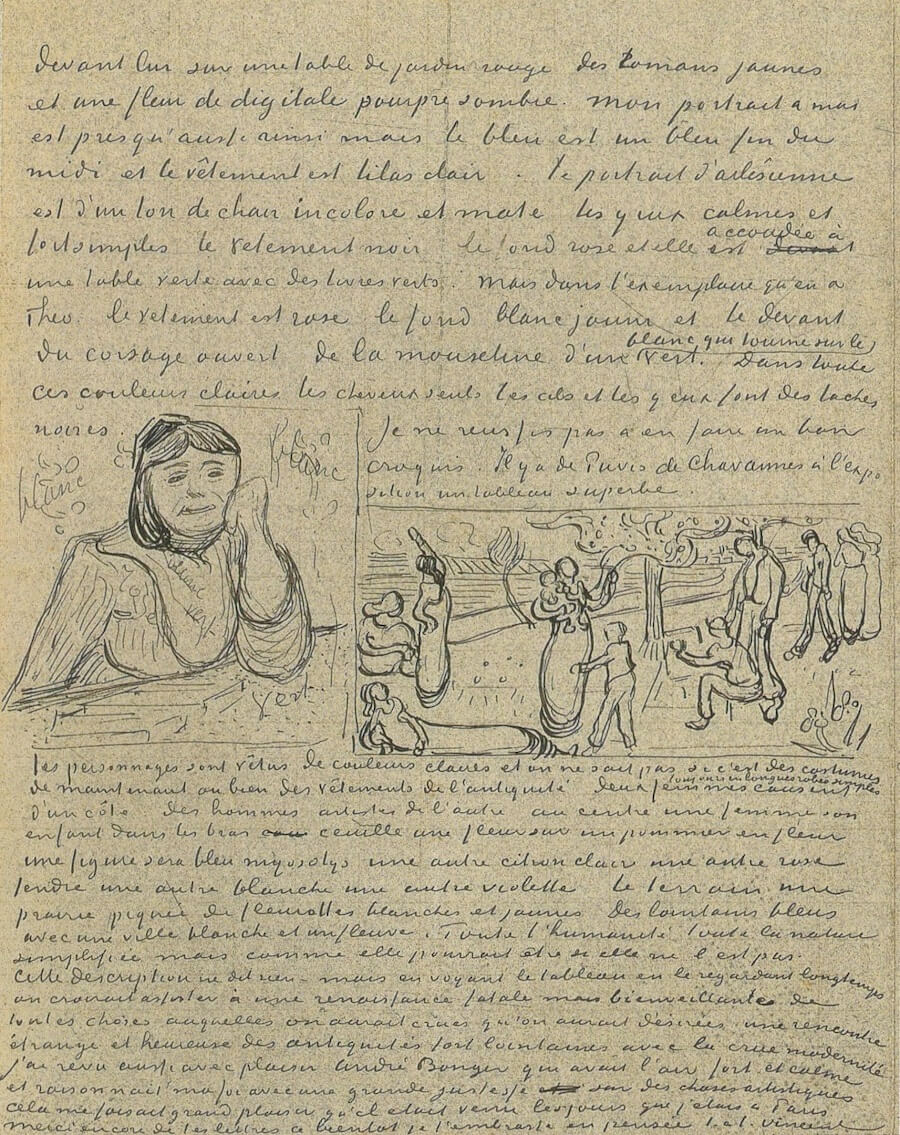 devant lui sur une table de jardin rouge des romans jaunes
et une fleur de digitale pourpre sombre. mon portrait a moi
est presqu'aussi ainsi mais le bleu est un bleu fin du
midi et le vêtement est lilas clair. le portrait d'arlésienne
est d'un ton de chair incolore et mate les yeux calmes et
fort simples le vetement noir le fond rose et elle est accoudée à
une table verte avec des livres verts. mais dans l'exemplaire qu'en a
Theo. le vetement est rose le fond blanc jaune et le devant
du corsage ouvert de la mousseline d'un blanc qui tourne sur le
vert. Dans toute
ces couleurs claires les cheveux seuls les cils et les yeux font des taches
noires.
Je ne reussis pas a en faire un bon
croquis. Il y a de Puvis de Chavannes à l'expo
sition un tableau superbe.
blanc
blanc
blanc
vert
vert
les personnages sont vêtus de couleurs claires et on ne sait pas si c'est des costumes
de maintenant ou bien des vêtements de l'antiquité deux femmes causent
toujours en longues robes simples
d'un côté des hommes artistes de l'autre au centre une femme son
enfant dans les bras cueille une fleur sur un pommier en fleur
une figure sera bleu myosotys une autre citron clair une autre rose
tendre une autre blanche une autre violette le terrain une
prairie piquée de fleurettes blanches et jaunes Des lointains bleus
avec une ville blanche et un fleuve. Toute l'humanité toute la nature
simplifiée mais comme elle pourrait être si elle ne l'est pas.
Cette description ne dit rien - mais en voyant le tableau en le regardant longtemps
on croirait assister à une renaissance fatale mais bienveillante de
toutes choses auquelles on aurait crues qu'on aurait désirées une rencontre
étrange et heureuse des antiquités fort lointaines avec la crue modernité
j'ai revu aussi avec plaisir André Bonger qui avait l'air fort et calme
et raisonnait ma foi avec une grande justesse sur des choses artistiques
cela me faisait grand plaisir qu'il etait venu les jours que j'etais à Paris
merci encore de tes lettres à bientot je t'embrasse en pensée t. à t. vincent